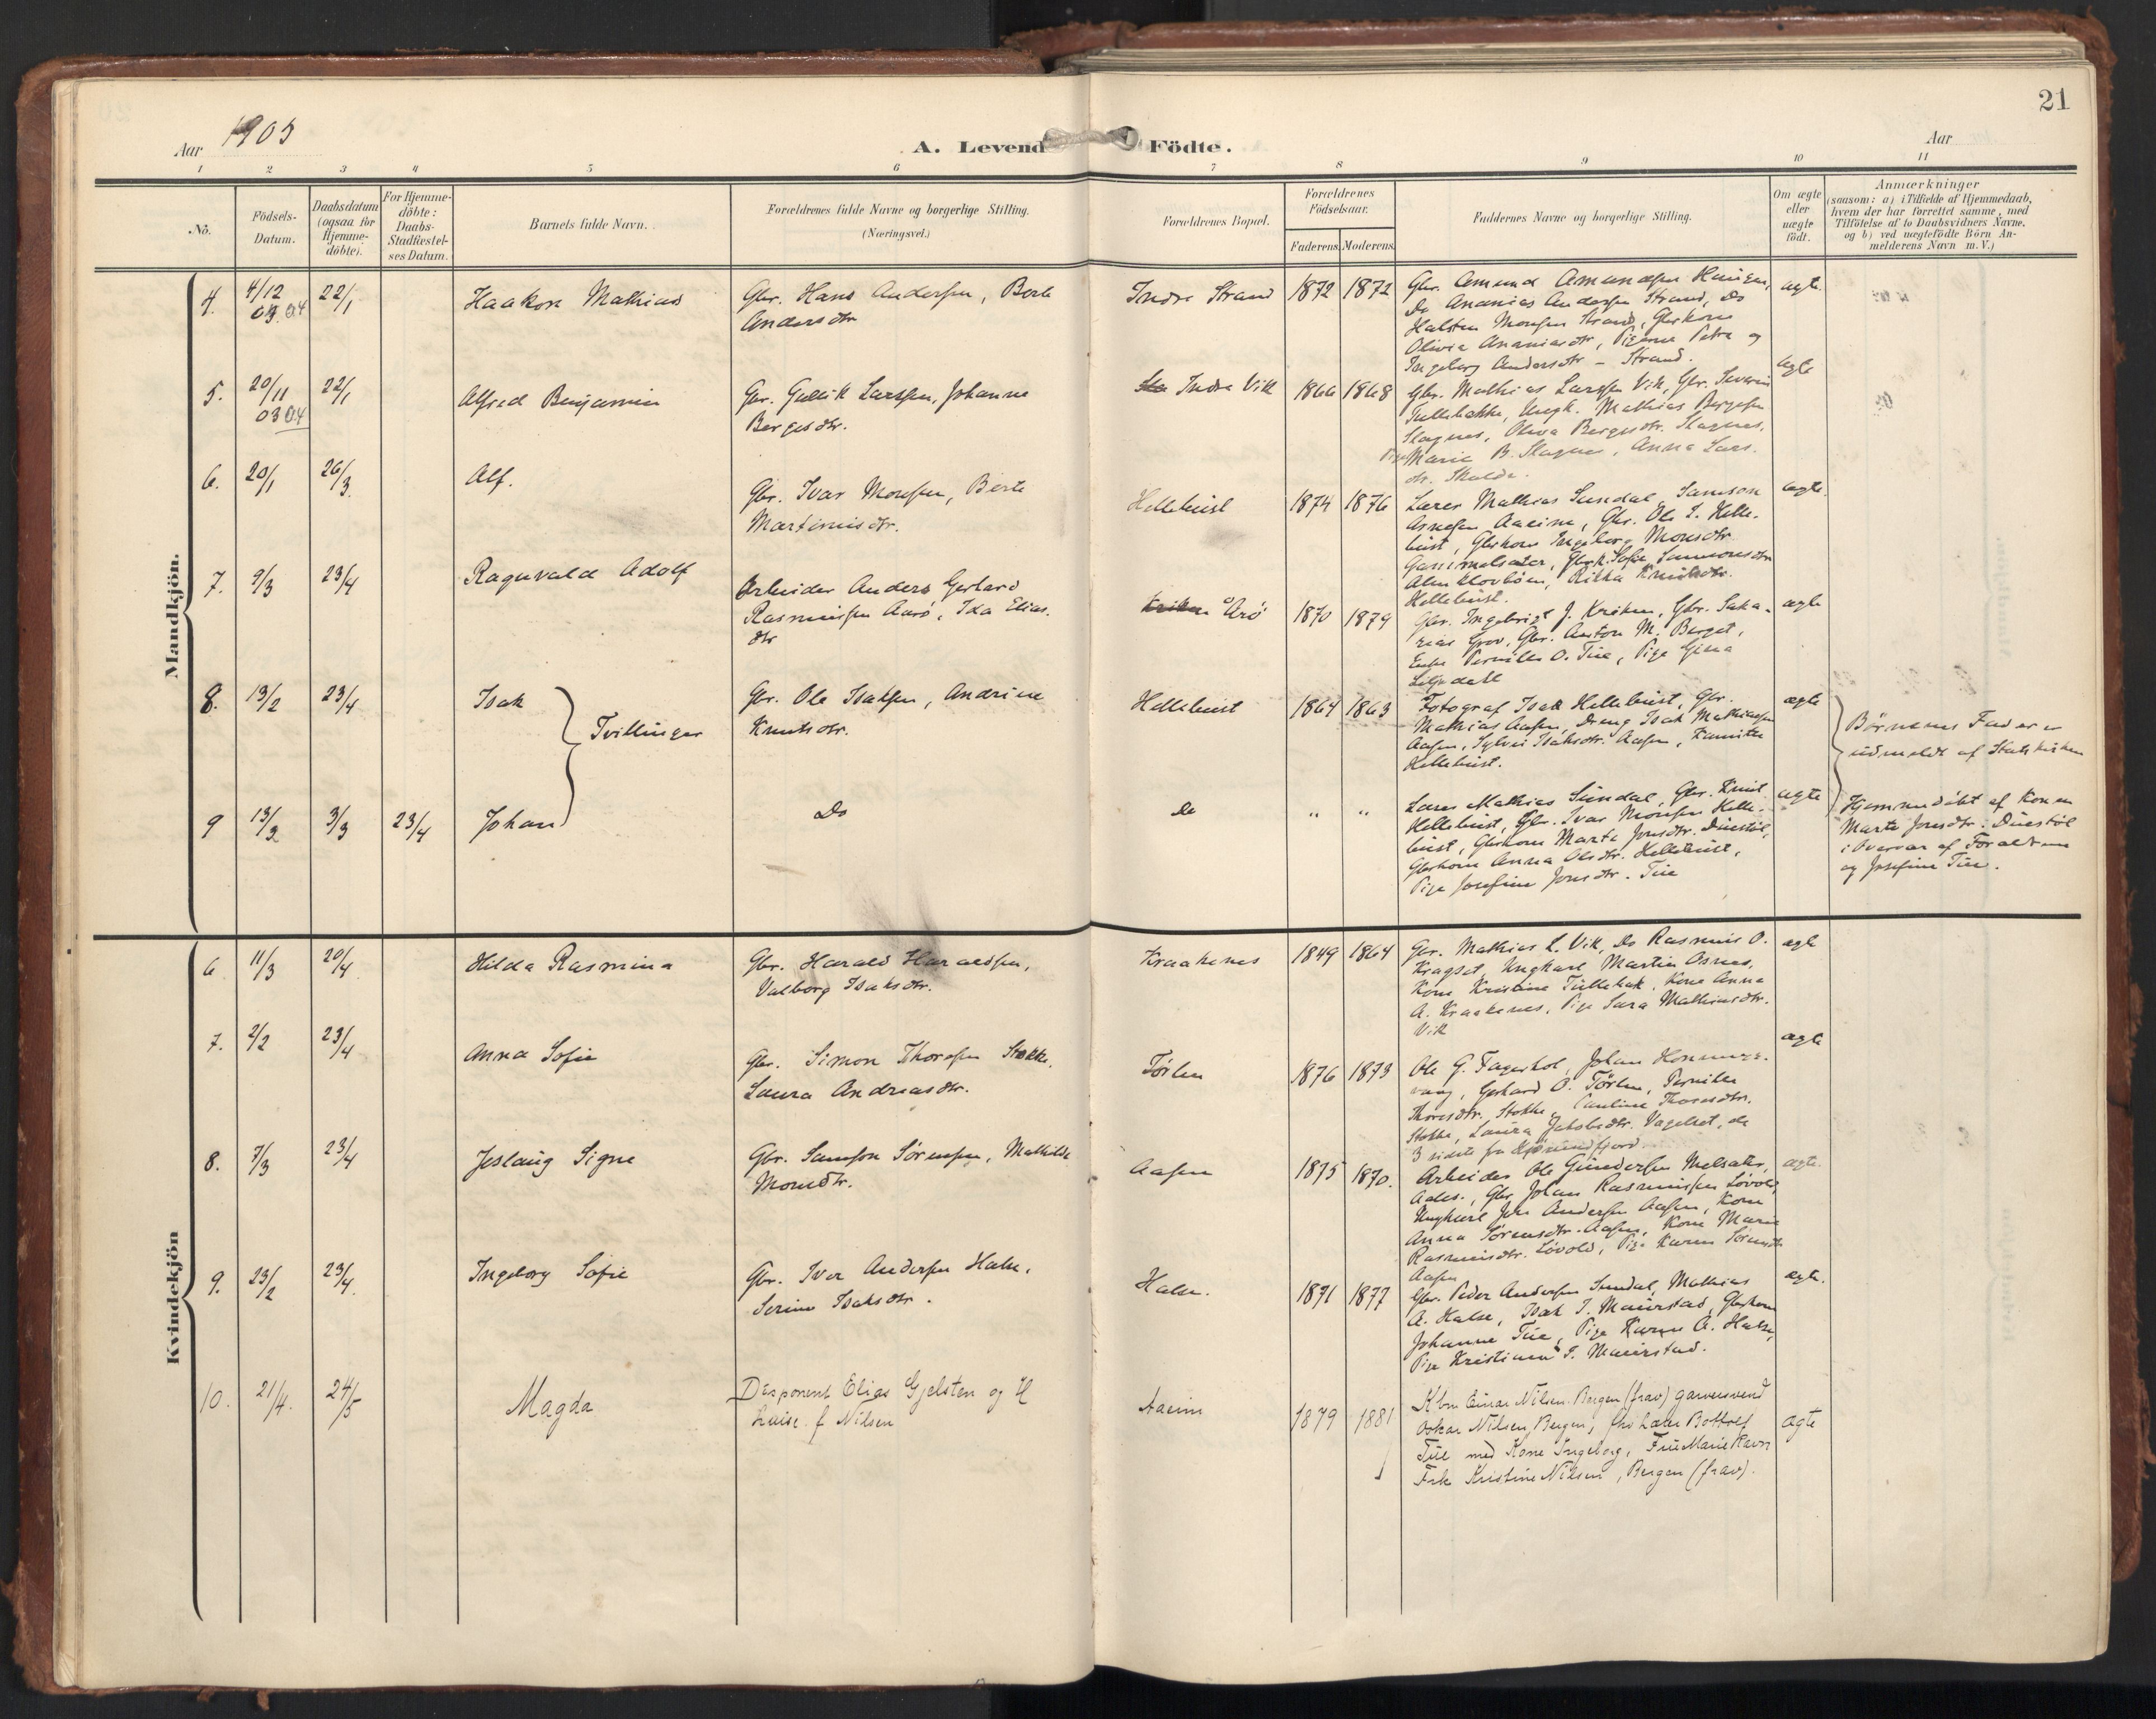 21
Aar 1905
A. Levend Födte.
Aar
1 2 3 4 5 6 7 8 9 10 11
No.
Födsels-
Datum.
Daabsdatum
(ogsaa for
Hjemme-
döbte).
For Hjemme-
döbte:
Daabs-
Stadfæstel-
ses Datum.
Barnets fulde Navn.
Forældrenes fulde Navne og borgerlige Stilling.
(Næringsvei.)
Forældrenes Bopæl.
Forældrenes
Födselsaar.
Faderens. Moderens.
Faddernes Navne og borgerlige Stilling.
Om ægte
eller
uægte
födt.
Anmærkninger
(saasom: a) i Tilfælde af Hjemmedaab,
hvem der har forrettet samme, med
Tilföielse af to Daabsvidners Navne.
og b) ved uægtefödte Börn An-
melderens Navn m. V.)
Mandkjön.
4. 4/12 04 22/1 Haakon Mathias
Gbr. Hans Andersen, Berte
Andersdtr
Indre Strand 1872 1872
Gbr. Amund Amundsen Haugen,
Do Ananias Andersen Strand, Do
Halsten Monsen Strand, Gbrkone
Olivia Ananiasdtr, Pigerne Petra og
Ingeborg Andersdtr - Strand.
ægte
5. 20/11 03 04 22/1 Alfred Benjamin
Gbr. Gullik Larssen, Johanne
Bergesdtr.
Indre Vik 1866 1868
Gbr. Mathias Larssen Vik, Gbr. Severin
Tullebakke, Ungk. Mathias Bergesen
Slagnes, Oliva Bergesdtr. Slagnes,
Marie B. Slagnes, Anna Lars-
dtr. Skulda.
ægte
6. 20/1 26/3 Alf.
Gbr. Ivar Monsen, Berte
Martinusdtr.
Hellebust 1874 1876
Lærer Mathias Sundal, Samson
Arnesen Aaeim, Gbr. Ole I. Helle-
bust, Gbrkone Ingeborg Monsdtr
Hellebust.
ægte
7. 9/3 23/4 Ragnvald Adolf
Arbeider Anders Gerhard
Rasmussen Aarö, Ida Elias-
dtr
Årö 1870 1879
Gbr. Ingebrigt J. Kriken, Gbr. Saka-
rias Grov, Gbr. Anton M. Berget,
Enke Pernille O. Tue, Pige Gina
Liljedahl
ægte
8. 13/2 23/4 Isak
Tvillinger
Gbr. Ole Isaksen, Andrine
Knutsdtr.
Hellebust 1864 1863
Fotograf Isak Hellebust, Gbr.
Mathias Aasen, Dreng Isak Mathiassen
Aasen, Sylvei Isaksdtr. Aasen, Kamilla
Hellebust.
ægte
Börnenes Fader er
udmeldt af Statskirken
9 13/2 3/3 23/4 Johan
Do
Do " "
Lærer Mathias Sundal, Gbr. Knut
Hellebust, Gbr. Ivar Monsen Helle-
bust, Gbrkone Marte Jonsdtr. Duestöl,
Gbrkone Anna Olsdtr. Hellebust,
Pige Josefine Jonsdtr. Tue
ægte
Hjemmedöbt af Konen
Marte Jonsdtr. Duestöl
i Overvær af Forældrene
og Josefine Tue.
Kvindekjön
6. 11/3 20/4 Hilda Rasmina
Gbr. Harald Haraldsen,
Valborg Isaksdtr.
Kraakenes 1849 1864
Gbr. Mathias L. Vik, Do Rasmus O.
Kragset, Ungkarl Martin Osnes,
Kone Kristine Tullebak, Kone Anna
A. Kraakenes, Pige Sara Mathiasdtr.
Vik
ægte
7. 2/2 23/4 Anna Sofie
Gbr. Simon Thoresen Stokke,
Laura Andreasdtr.
Törlen 1876 1873
Ole G. Fagerhol, Johan Hornnes-
vaag, Gerhard O. Törlen, Pernille
Thoresdtr. Stokke, Pauline Thoresdtr.
Stokke, Laura Jakobsdtr. Vageket, de
3 sidste fra Hjörundfjord.
ægte
8. 7/3 23/4 Jeslaug Signe
Gbr. Samson Sörensen, Mathilde
Monsdtr.
Aasen 1875 1870.
Arbeider Ole Gundersen Melsæter,
Gbr. Johan Rasmussen Lövold,
Ungkarl Jon Andersen Aasen, Kone
Anna Sörensdtr. Aasen, Kone Marie
Rasmusdtr. Lövold, Pige Karen Sörensdtr
Aasen
ægte.
9. 23/2 23/4 Ingeborg Sofie
Gbr. Iver Andersen Halse,
Serine Isaksdtr.
Halse. 1871 1877
Gbr. Peder Andersen Sundal, Mathias
A. Halse, Isak I. Maurstad, Gbrkone
Johanne Tue, Pige Karen A. Halse,
Pige Kristiane I. Maurstad.
ægte.
10. 21/4. 24/5 Magda
Disponent Elias Gjelsten og H
Luise f Nilsen
Aaeim 1879 1881
Kbm Einar Nilsen Bergen (frav) garversvend
Oskar Nilsen, Bergen, Lærer Bottolf
Tue med Kone Ingeborg, Frue Marie Ravn
Frk Kristine Nilsen, Bergen (frav).
ægte